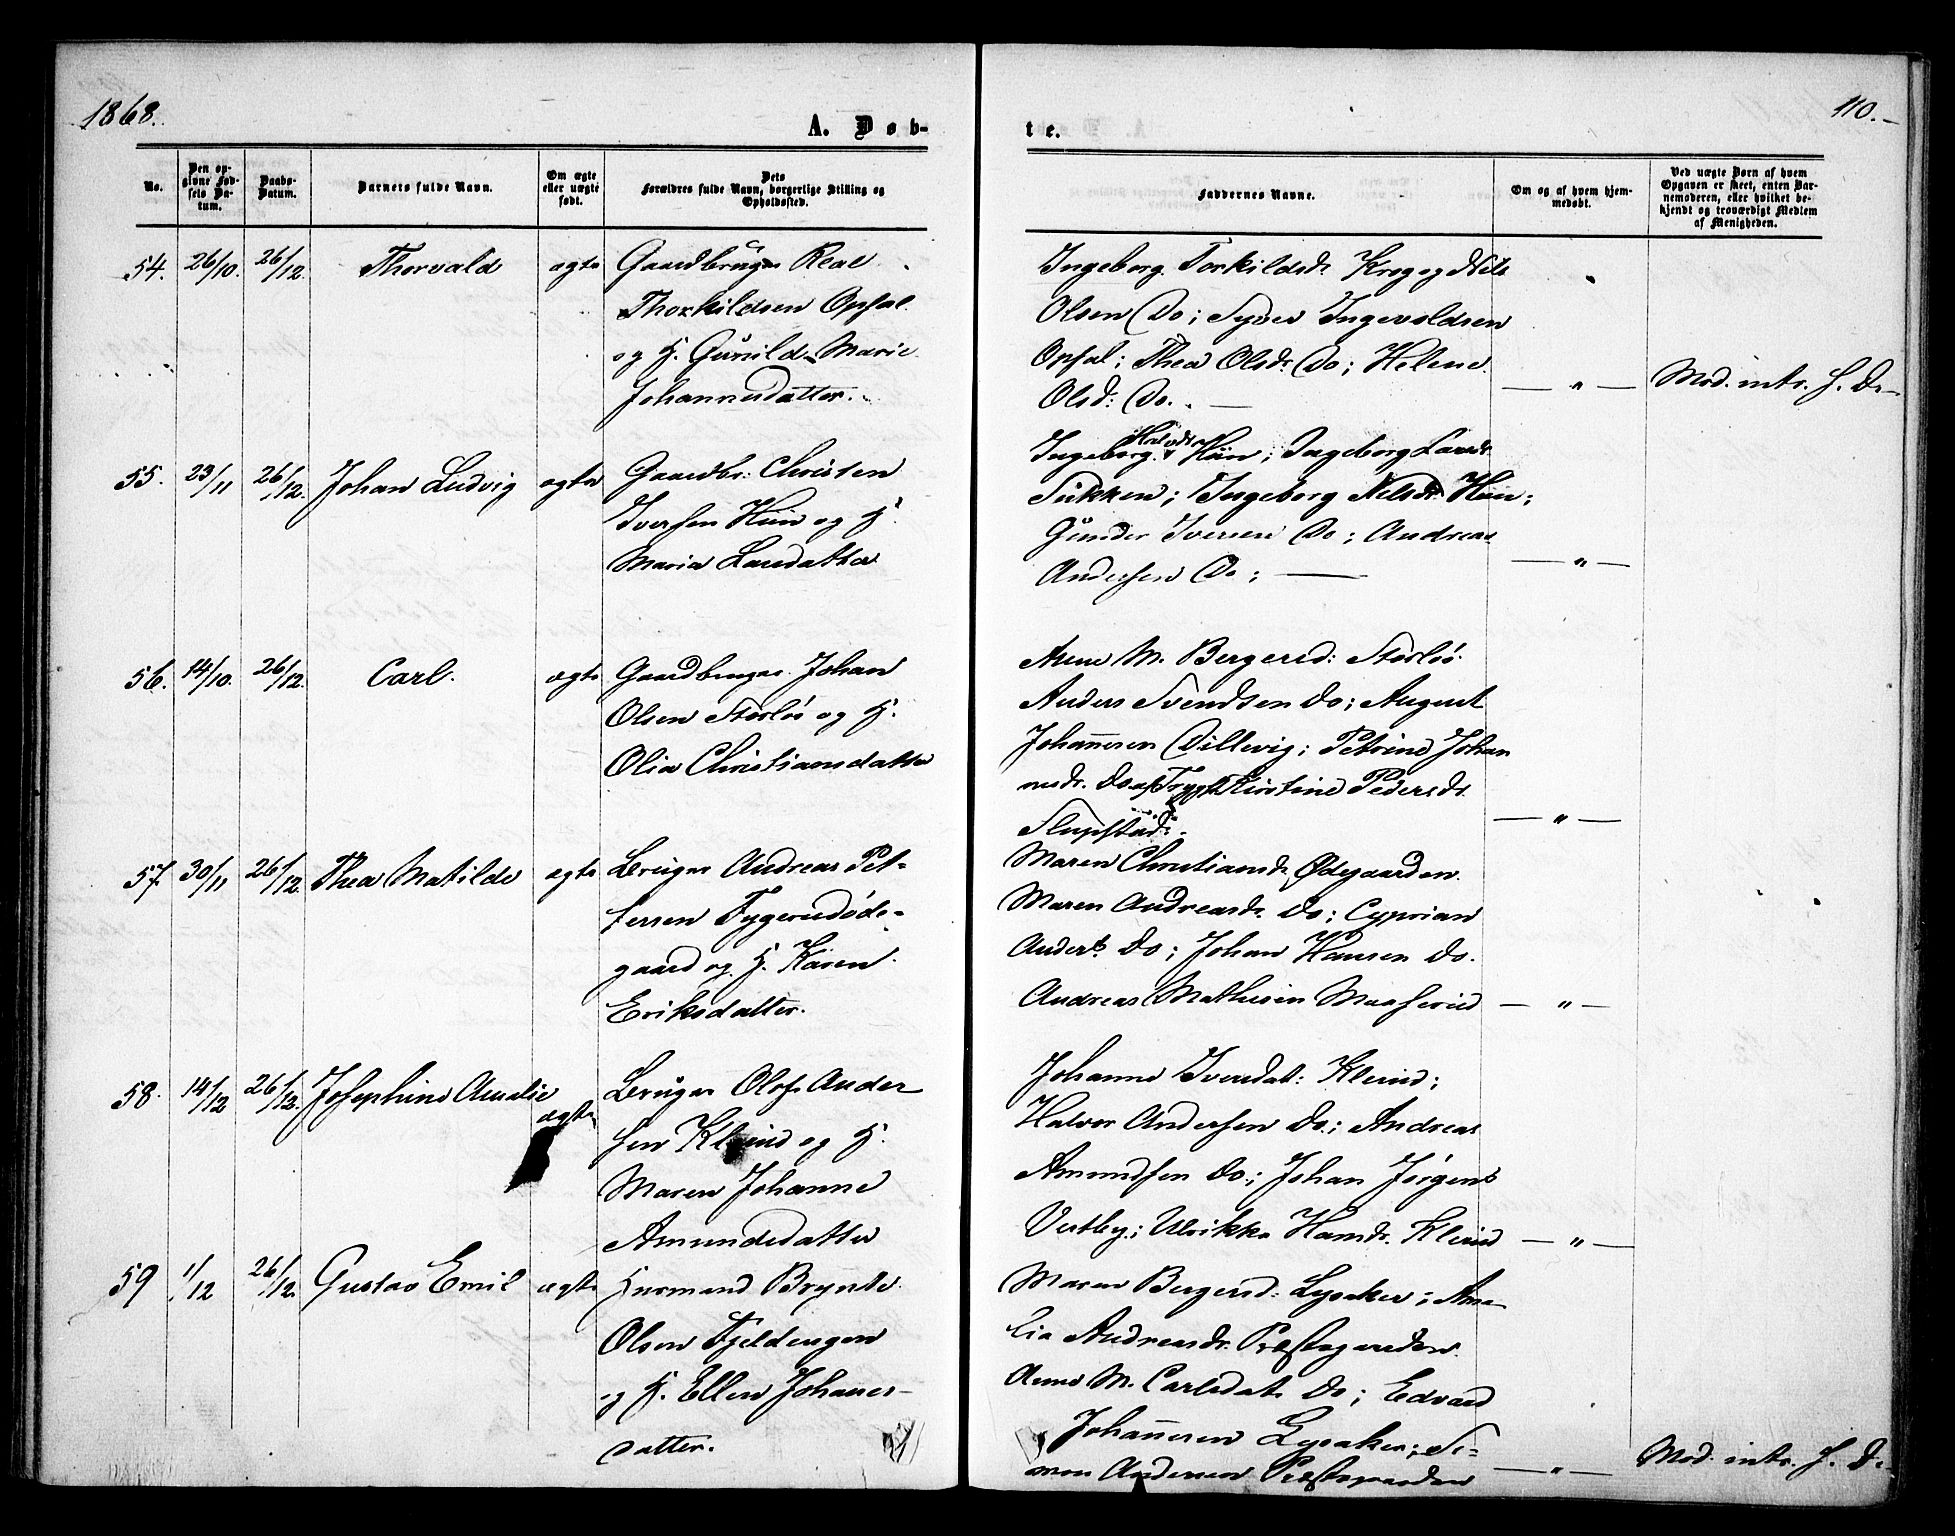 1868.
110.-
A. Døb-
te.
No.
Den op-
givne Fød-
sels Da-
tum.
Daabs-
Datum.
Barnets fulde Navn.
Om ægte
eller uægte
født.
Dets
Forældres fulde Navn, borgerlige Stilling og
Opholdssted.
Faddernes Navne.
Om og af hvem hjem-
medøbt.
Ved uægte Børn af hvem
Opgaven er skeet, enten Bar-
nemoderen, eller hvilket be-
kjendt og troværdigt Medlem
af Menigheden.
54. 26/10. 26/12. Thorvald ægte
Gaardbruger
Thorkildsen Opsal
og H. Gunild Marie
Johannesdatter.
Ingeborg Torkildsdr. Krog og Nils
Olsen Do; Syver Ingevoldsen
Opsal; Thea Olsdr. Do; Helene
Olsd: Do. —
— " —
Mod. intr. s. D.
55. 23/11 26/12. Johan Ludvig ægte
Gaardbr: Christen
Iversen Hün og H.
Maria Larsdatter
Ingeborg Hün; Ingeborg Larsdr.
Sikken; Ingeborg Nilsdr. Hün;
Gunder Iversen Do; Andreas
Andersen Do; —
— " —
56. 14/10. 26/12. Carl. ægte
Gaardbruger Johan
Olsen Storlös og H.
Olia Christiansdatter
Anne M. Bergersd: Storlös.
Anders Svendsen Do; August
Johannesen Dillevig; Petrine Johan
nesdr. Do Kirstine Pedersdr.
Slupstad.
— " —
57. 30/11 26/12. Thea Matilde ægte
Bruger Andreas Pet-
tersen Tygerudøde-
gaard og H. Karen
Eriksdatter.
Maren Christiansdr. Ødegaarden.
Maren Andreasdr. Do; Cyprian
Anders. Do; Johan Hansen Do.
Andreas Mathisen
— " —
58. 14/12 26/12. Josephine Amalie ægte
Bruger Olof Ander
sen Klerud og H.
Maren Johanne
Amundsdatter
Johanne Iversdat: Klerud;
Halvor Andersen Do; Andreas
Amundsen Do; Johan Jørgens
Vestby; Ulrikke Hansdr. Klerud
— " —
59 11/12 26/12. Gustav Emil ægte
Husmand Brynte
Olsen Fjeldengen
og H. Ellen Johanes-
datter.
Maren Bergersd: Lysaker; Ama-
lia Andreasdr. Præstegaarden.
Anne M. Carlsdat. Do; Edvard
Johannesen Lysaker; Si-
mon Andersen Præstegaarden
— " —
Mod. intr. s. D.